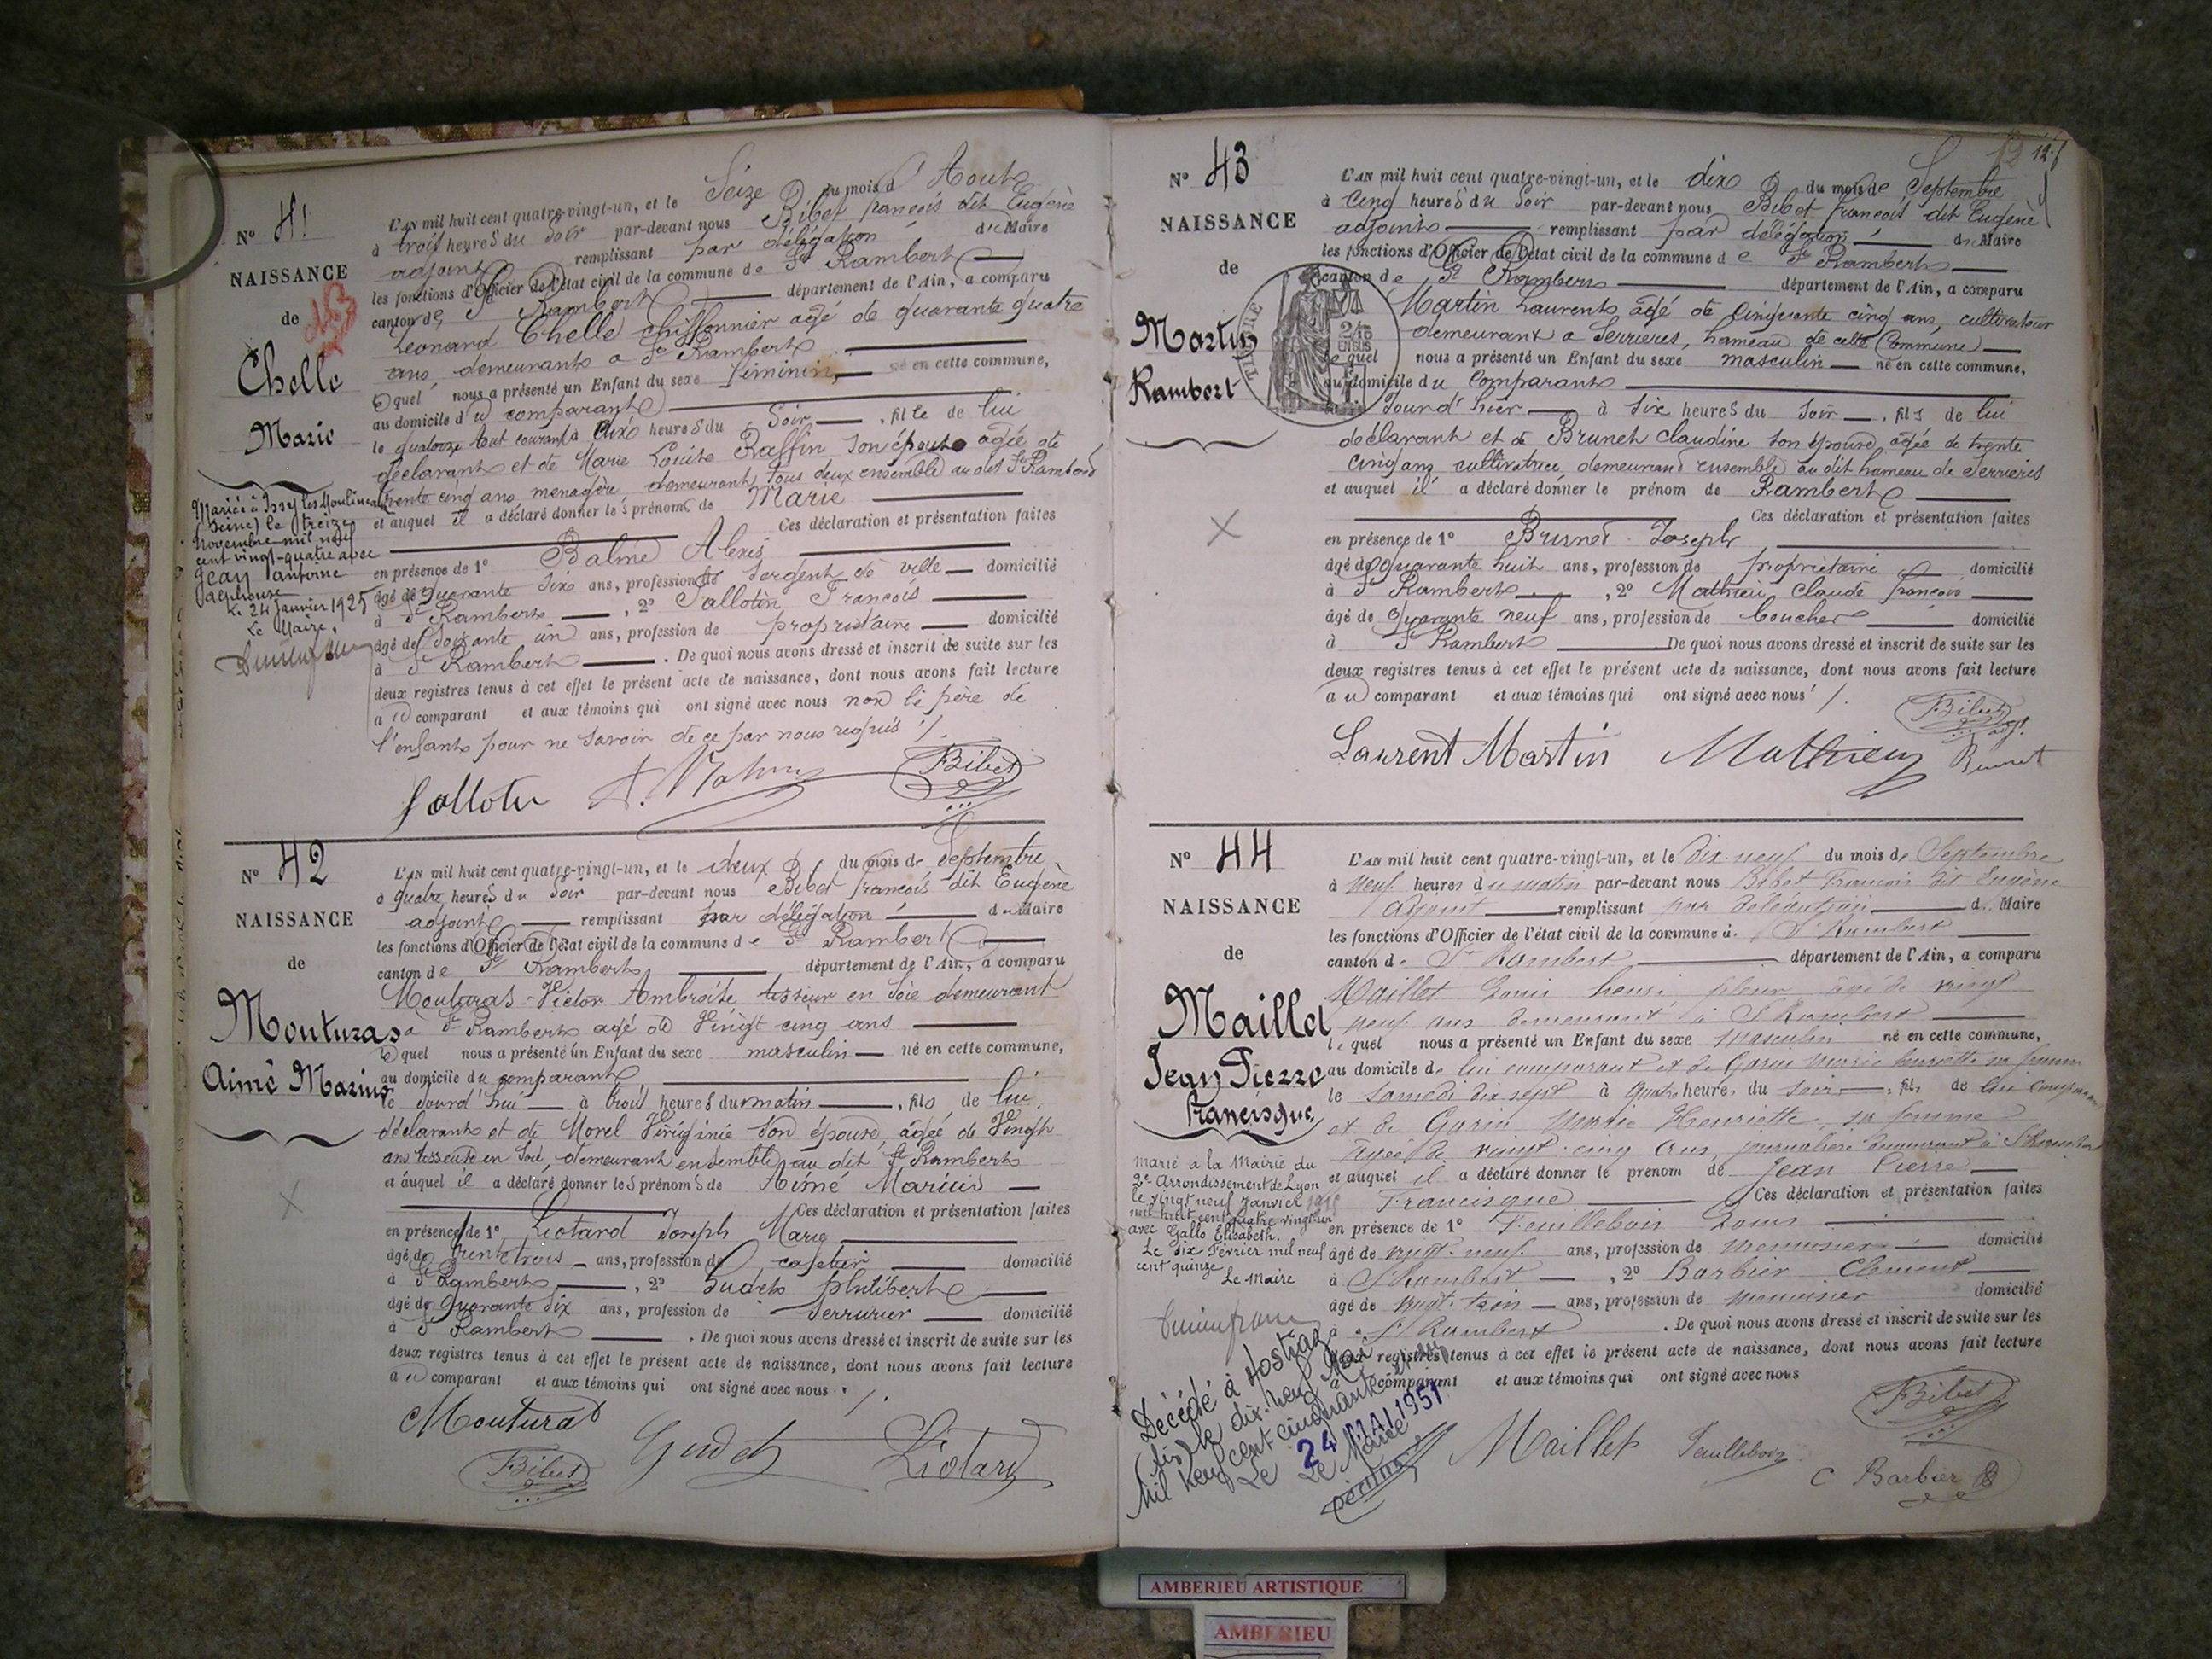 N° 41
NAISSANCE
de
Chelle
Marie
Mariée à Issy les Moulineaux
(Seine) le treize
Novembre mil neuf
cent vingt-quatre avec
Jean Antoine
Le 24 Janvier 1925
Le Maire,
L'AN mil huit cent quatre-vingt-un, et le Seize du mois d'Aout
à trois heures du Soir par-devant nous Bibet francois dit Eugène
adjoint remplissant par délégation du Maire
les fonctions d'Officier de l'état civil de la commune de St Rambert
canton de St Rambert département de l'Ain, a comparu
Leonard Chelle chiffonnier agé de quarante quatre
ans demeurant a St Rambert
lequel nous a présenté un Enfant du sexe féminin, né en cette commune,
au domicile du comparant
le quatorze Aout courant à dix heures du Soir, fille de lui
déclarant et de Marie Louise Raffin son épouse agée de
trente cinq ans menagère demeurant tous deux ensemble au dit St Rambert
et auquel il a déclaré donner les prénoms de Marie
Ces déclaration et présentation faites
en présence de 1° Balme Alexis
âgé de quarante six ans, profession de Sergent de ville domicilié
à St Rambert, 2° Sallotin Francois
âgé de Soixante un ans, profession de propriétaire domicilié
à St Rambert. De quoi nous avons dressé et inscrit de suite sur les
deux registres tenus à cet effet le présent acte de naissance, dont nous avons fait lecture
au comparant et aux témoins qui ont signé avec nous non le père de
l'enfant pour ne savoir de ce par nous requis /.
Bibet
N° 42
NAISSANCE
de
Mouturas
Aimé Marius
L'AN mil huit cent quatre-vingt-un, et le deux du mois de Septembre
à quatre heures du Soir par-devant nous Bibet francois dit Eugène
adjoint remplissant par délégation du Maire
les fonctions d'Officier de l'état civil de la commune de St Rambert
canton de St Rambert département de l'Ain, a comparu
Mouturas Victor Ambroise tisseur en Soie demeurant
a St Rambert agé de Vingt cinq ans
lequel nous a présenté un Enfant du sexe masculin né en cette commune,
au domicile du comparant
le Jourd'hui à trois heures du matin, fils de lui
déclarant et de Morel Virginie Son épouse, agée de Vingt
ans tisseuse en Soie, demeurant ensemble au dit St Rambert
et auquel il a déclaré donner les prénoms de Aimé Marius
Ces déclaration et présentation faites
en présence de 1° Liotard Joseph Marie
âgé de trente trois ans, profession de cafetier domicilié
à St Rambert, 2° Gudet philibert
âgé de Quarante Six ans, profession de Serrurier domicilié
à St Rambert. De quoi nous avons dressé et inscrit de suite sur les
deux registres tenus à cet effet le présent acte de naissance, dont nous avons fait lecture
au comparant et aux témoins qui ont signé avec nous /.
Mouturas
Bibet Gudet Liotard
N° 43
NAISSANCE
de
Martin
Rambert
TIMBRE
L'AN mil huit cent quatre-vingt-un, et le dix du mois de Septembre
à Cinq heures du Soir par-devant nous Bibet francois dit Eugène
adjoint remplissant par délégation du Maire
les fonctions d'Officier de l'état civil de la commune de St Rambert
canton de St Rambert département de l'Ain, a comparu
Martin Laurent agé de Cinquante cinq ans, cultivateur
demeurant a Serrieres, hameau de cette Commune
lequel nous a présenté un Enfant du sexe masculin né en cette commune,
au domicile du Comparant
Jour d'hier à Six heures du Soir, fils de lui
déclarant et de Brunet Claudine Son épouse, agée de trente
Cinq ans cultivatrice demeurant ensemble au dit hameau de Serrieres
et auquel il a déclaré donner le prénom de Rambert
Ces déclaration et présentation faites
en présence de 1° Brunet Joseph
âgé de quarante huit ans, profession de propriétaire domicilié
à St Rambert, 2° Mathieu Claude francois
âgé de Quarante neuf ans, profession de boucher domicilié
à St Rambert De quoi nous avons dressé et inscrit de suite sur les
deux registres tenus à cet effet le présent acte de naissance, dont nous avons fait lecture
au comparant et aux témoins qui ont signé avec nous /.
Bibet adj.
Laurent Martin Mathieu Brunet
N° 44
NAISSANCE
de
Maillet
Jean Pierre
Francisque
Marié à la Mairie du
2e Arrondissement de Lyon
le vingt neuf Janvier
avec Gallo Elisabeth.
Le dix Février mil neuf
cent quinze
Le Maire
Décédé à
le dix-neuf Mai
Mil neuf cent cinquante
Le 24 MAI 1951
Le Maire
L'AN mil huit cent quatre-vingt-un, et le Dix-neuf du mois de Septembre
à Neuf heures du matin par-devant nous Bibet Francois dit Eugène
adjoint remplissant par délégation du Maire
les fonctions d'Officier de l'état civil de la commune de St Rambert
canton de St Rambert département de l'Ain, a comparu
Maillet Louis henri fileur agé de vingt
neuf ans demeurant à St Rambert
lequel nous a présenté un Enfant du sexe Masculin né en cette commune,
au domicile de lui comparant et de Garin Marie henriette sa femme
le Samedi dix sept à Quatre heures du soir, fils de lui comparant
et de Garin Marie Henriette, sa femme
agée de vingt cinq ans, journalière demeurant à St Rambert
et auquel il a déclaré donner le prénom de Jean Pierre
Francisque Ces déclaration et présentation faites
en présence de 1° Feuillebois Louis
âgé de vingt-neuf ans, profession de menuisier domicilié
à St Rambert, 2° Barbier Clément
âgé de vingt-trois ans, profession de menuisier domicilié
à St Rambert. De quoi nous avons dressé et inscrit de suite sur les
deux registres tenus à cet effet le présent acte de naissance, dont nous avons fait lecture
à comparant et aux témoins qui ont signé avec nous
Bibet
Maillet Feuillebois
C Barbier
AMBERIEU ARTISTIQUE
AMBERIEU